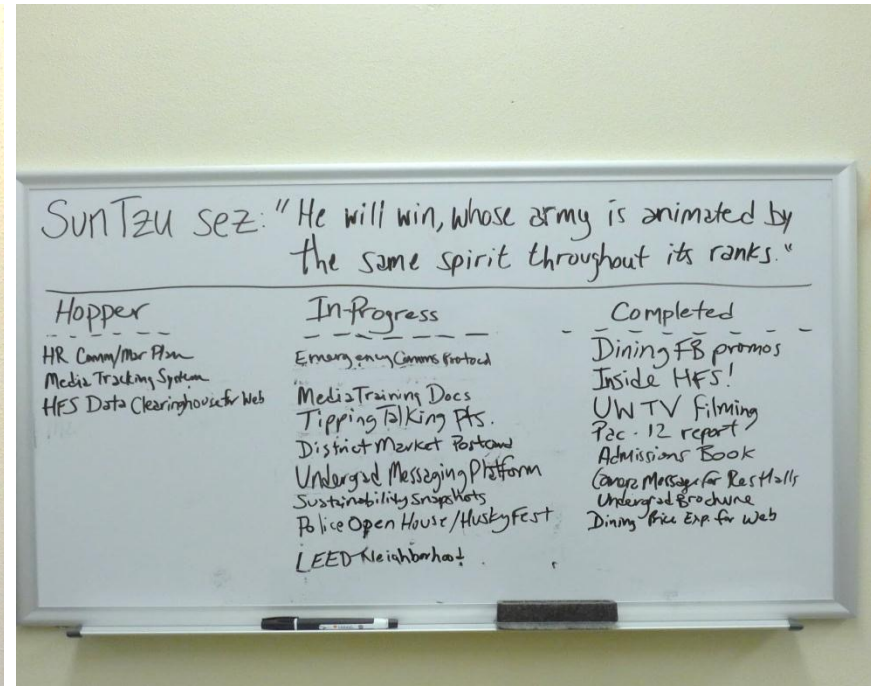 Sun Tzu sez: "He will win, whose army is animated by
the same spirit throughout its ranks."
Hopper
HR Comm/Mar Plan
Media Tracking System
HFS Data Clearinghouse for Web
In-Progress
Emergency Comms Protocol
Media Training Docs
Tipping Talking Pts.
District Market Postcard
Undergrad Messaging Platform
Sustainability Snapshots
Police Open House/HuskyFest
LEED Neighborhood
Completed
Dining FB promos
Inside HFS!
UWTV filming
Pac-12 report
Admissions Book
Message for Res Halls
Undergrad Brochure
Dining Price Exp. for Web